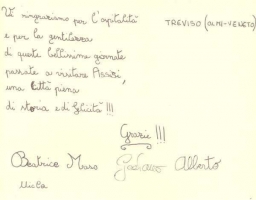 Vi ringraziamo per l'ospitalità
e per la gentilezza
di queste bellissime giornate
passate a visitare Assisi,
una città piena
di storia e di felicità!!!
TREVISO (OLMI-VENETO)
Grazie!!!
Beatrice Muro Alberto